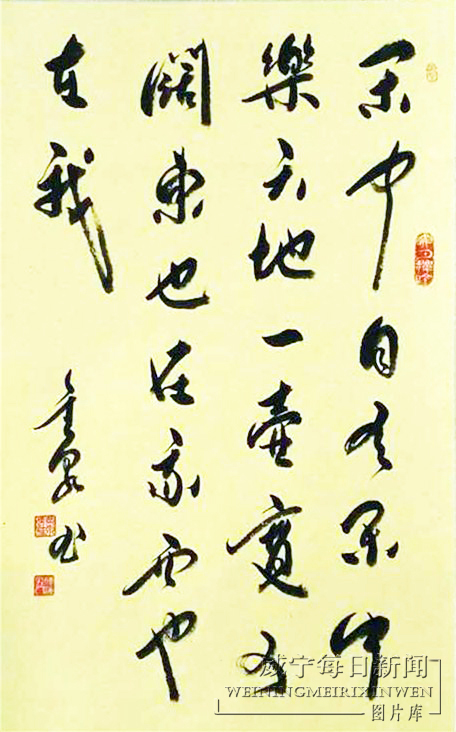 闲中自有闲中
樂天地一壶寬又
闊東也在我西也
在我
书
威宁每日新闻
WEININGMEIRIXINWEN
图片库